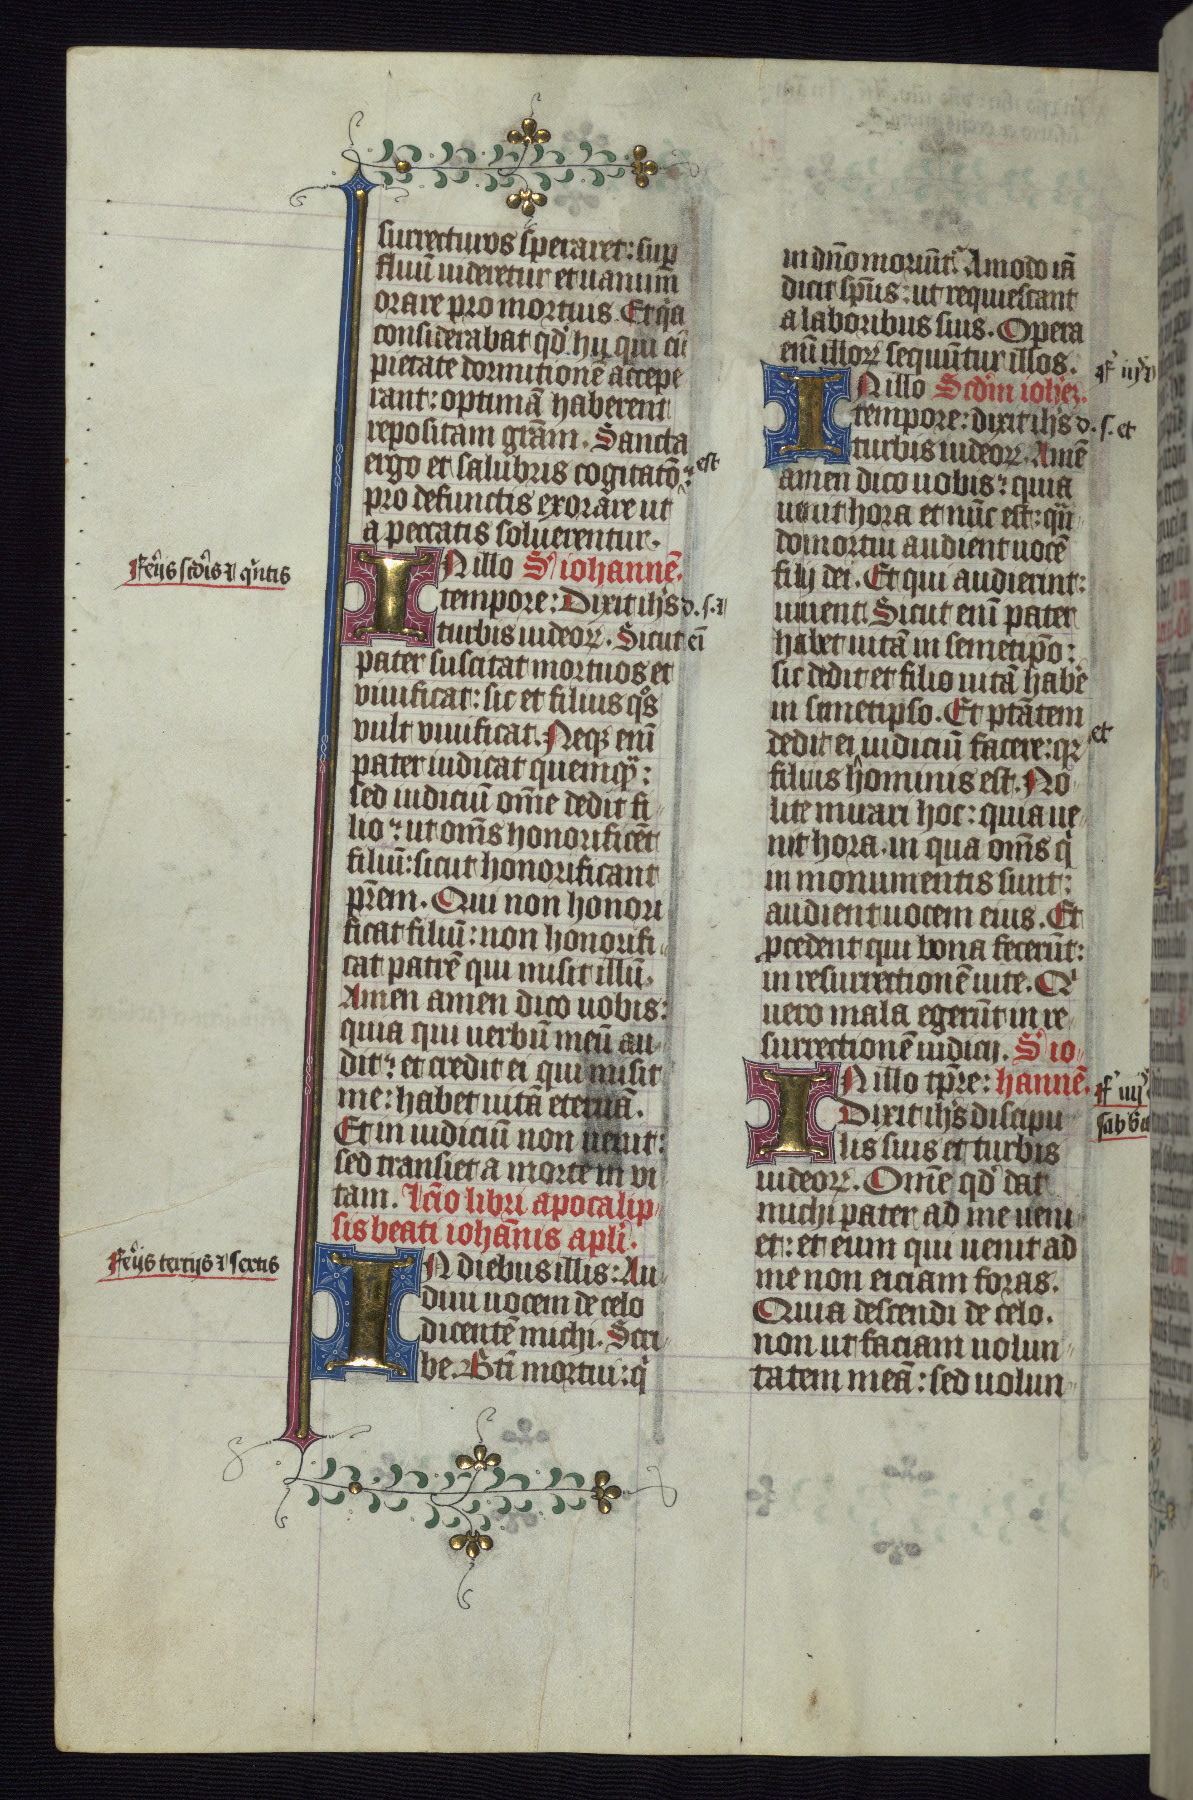 surrecturos speraret: sup̲
fluū uideretur et uanum
orare pro mortuis. Et q̇a
considerabat qd̓ hij qui cū
pietate dormitionē accepe
rant: optimā haberent
repositam grām. Sancta
ergo et salubris cogitatō: est
pro defunctis exorare ut
a peccatis soluerentur.
Fērijs scd̓is ⁊ q̄ntis
IN illo S' iohannē.
tempore: Dixit ih̄s d. s. ⁊
turbis iudeoꝝ. Sicut eī
pater suscitat mortuos et
viuificat: sic et filius q̊s
vult viuificat. Neqꝫ enī
pater iudicat quemqȝ:
sed iudiciū om̄e dedit fi-
lio: ut om̄s honorificēt
filiū: sicut honorificant
pr̄em. Qui non honori
ficat filiū: non honorifi-
cat patrē qui misit illū.
Amen amen dico uobis:
quia qui uerbū meū au-
dit: et credit ei qui misit
me: habet uitā eternā.
Et in iudiciū non uenit:
sed transiet a morte in vi
tam. Lcīo libri apocalip-
sis beati ioh̄annis apl̄i.
Fērijs tertijs ⁊ sextis
IN diebus illis: Au-
diui uocem de celo
dicentē michi. Scri-
be. Bt̄i mortui: q̇
in dn̄o moriūt᷑. Amodo iā
dicit sp̄us: ut requiescant
a laboribus suis. Opera
enī illoꝝ sequūtur illos.
IN illo Scd̓m ioh̄ez.
tempore: dixit ih̄s d. s. et
turbis iudeoꝝ. Amē
amen dico uobis: quia
uenit hora et nūc est: qn̄
do mortui audient uocē
filij dei. Et qui audierint:
uiuent. Sicut enī pater
habet uitā in semetip̄o:
sic dedit et filio uitā habē
in semetipso. Et ptātem
dedit ei iudiciū facere: qꝛ et
filius hominis est. No-
lite mirari hoc: quia ue-
nit hora. in qua om̄s q̇
in monumentis sunt:
audient uocem eius. Et
ꝓcedent qui bona fecerūt:
in resurrectionē uite. Q̇
uero mala egerūt in re-
surrectionē iudicij. S' io-
IN illo tp̄re: hannē. f' iiij
Dixit ih̄s discipu sab̄b
lis suis et turbis
iudeoꝝ. Om̄e qd̓ dat
michi pater ad me ueni-
et: et eum qui uenit ad
me non eiciam foras.
Quia descendi de celo.
non ut faciam uolun-
tatem meā: sed uolun-